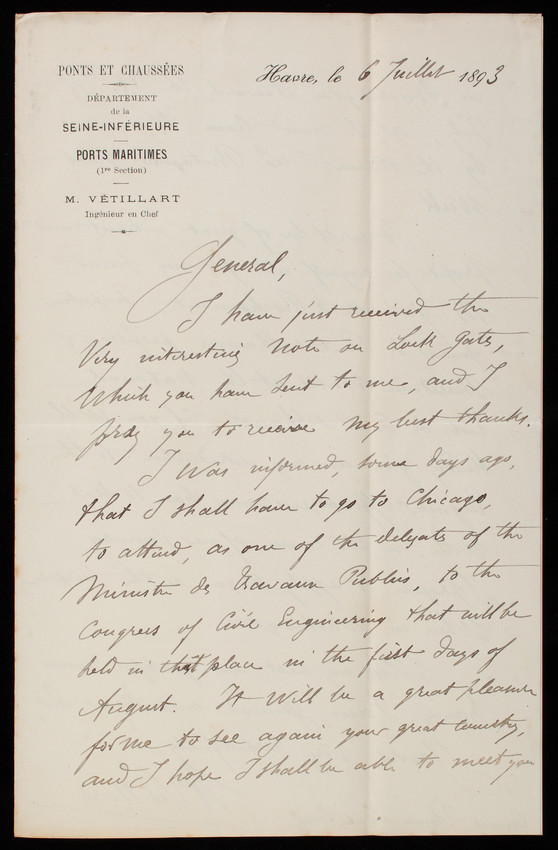 PONTS ET CHAUSSÉES
DÉPARTEMENT
de la
SEINE-INFÉRIEURE
PORTS MARITIMES
(1re Section)
M. VÉTILLART
Ingénieur en Chef
Havre, le 6 Juillet 1893
General,
I have just received the
Very interesting Note on Lock Gates,
Which you have sent to me, and I
pray you to receive my best thanks.
I was informed, some days ago,
that I shall have to go to Chicago,
to attend, as one of the delegates of the
Ministre des Travaux Publics, to the
Congress of Civil Engineering that will be
held in that place in the first days of
August. It will be a great pleasure
for me to see again your great country,
and I hope I shall be able to meet you